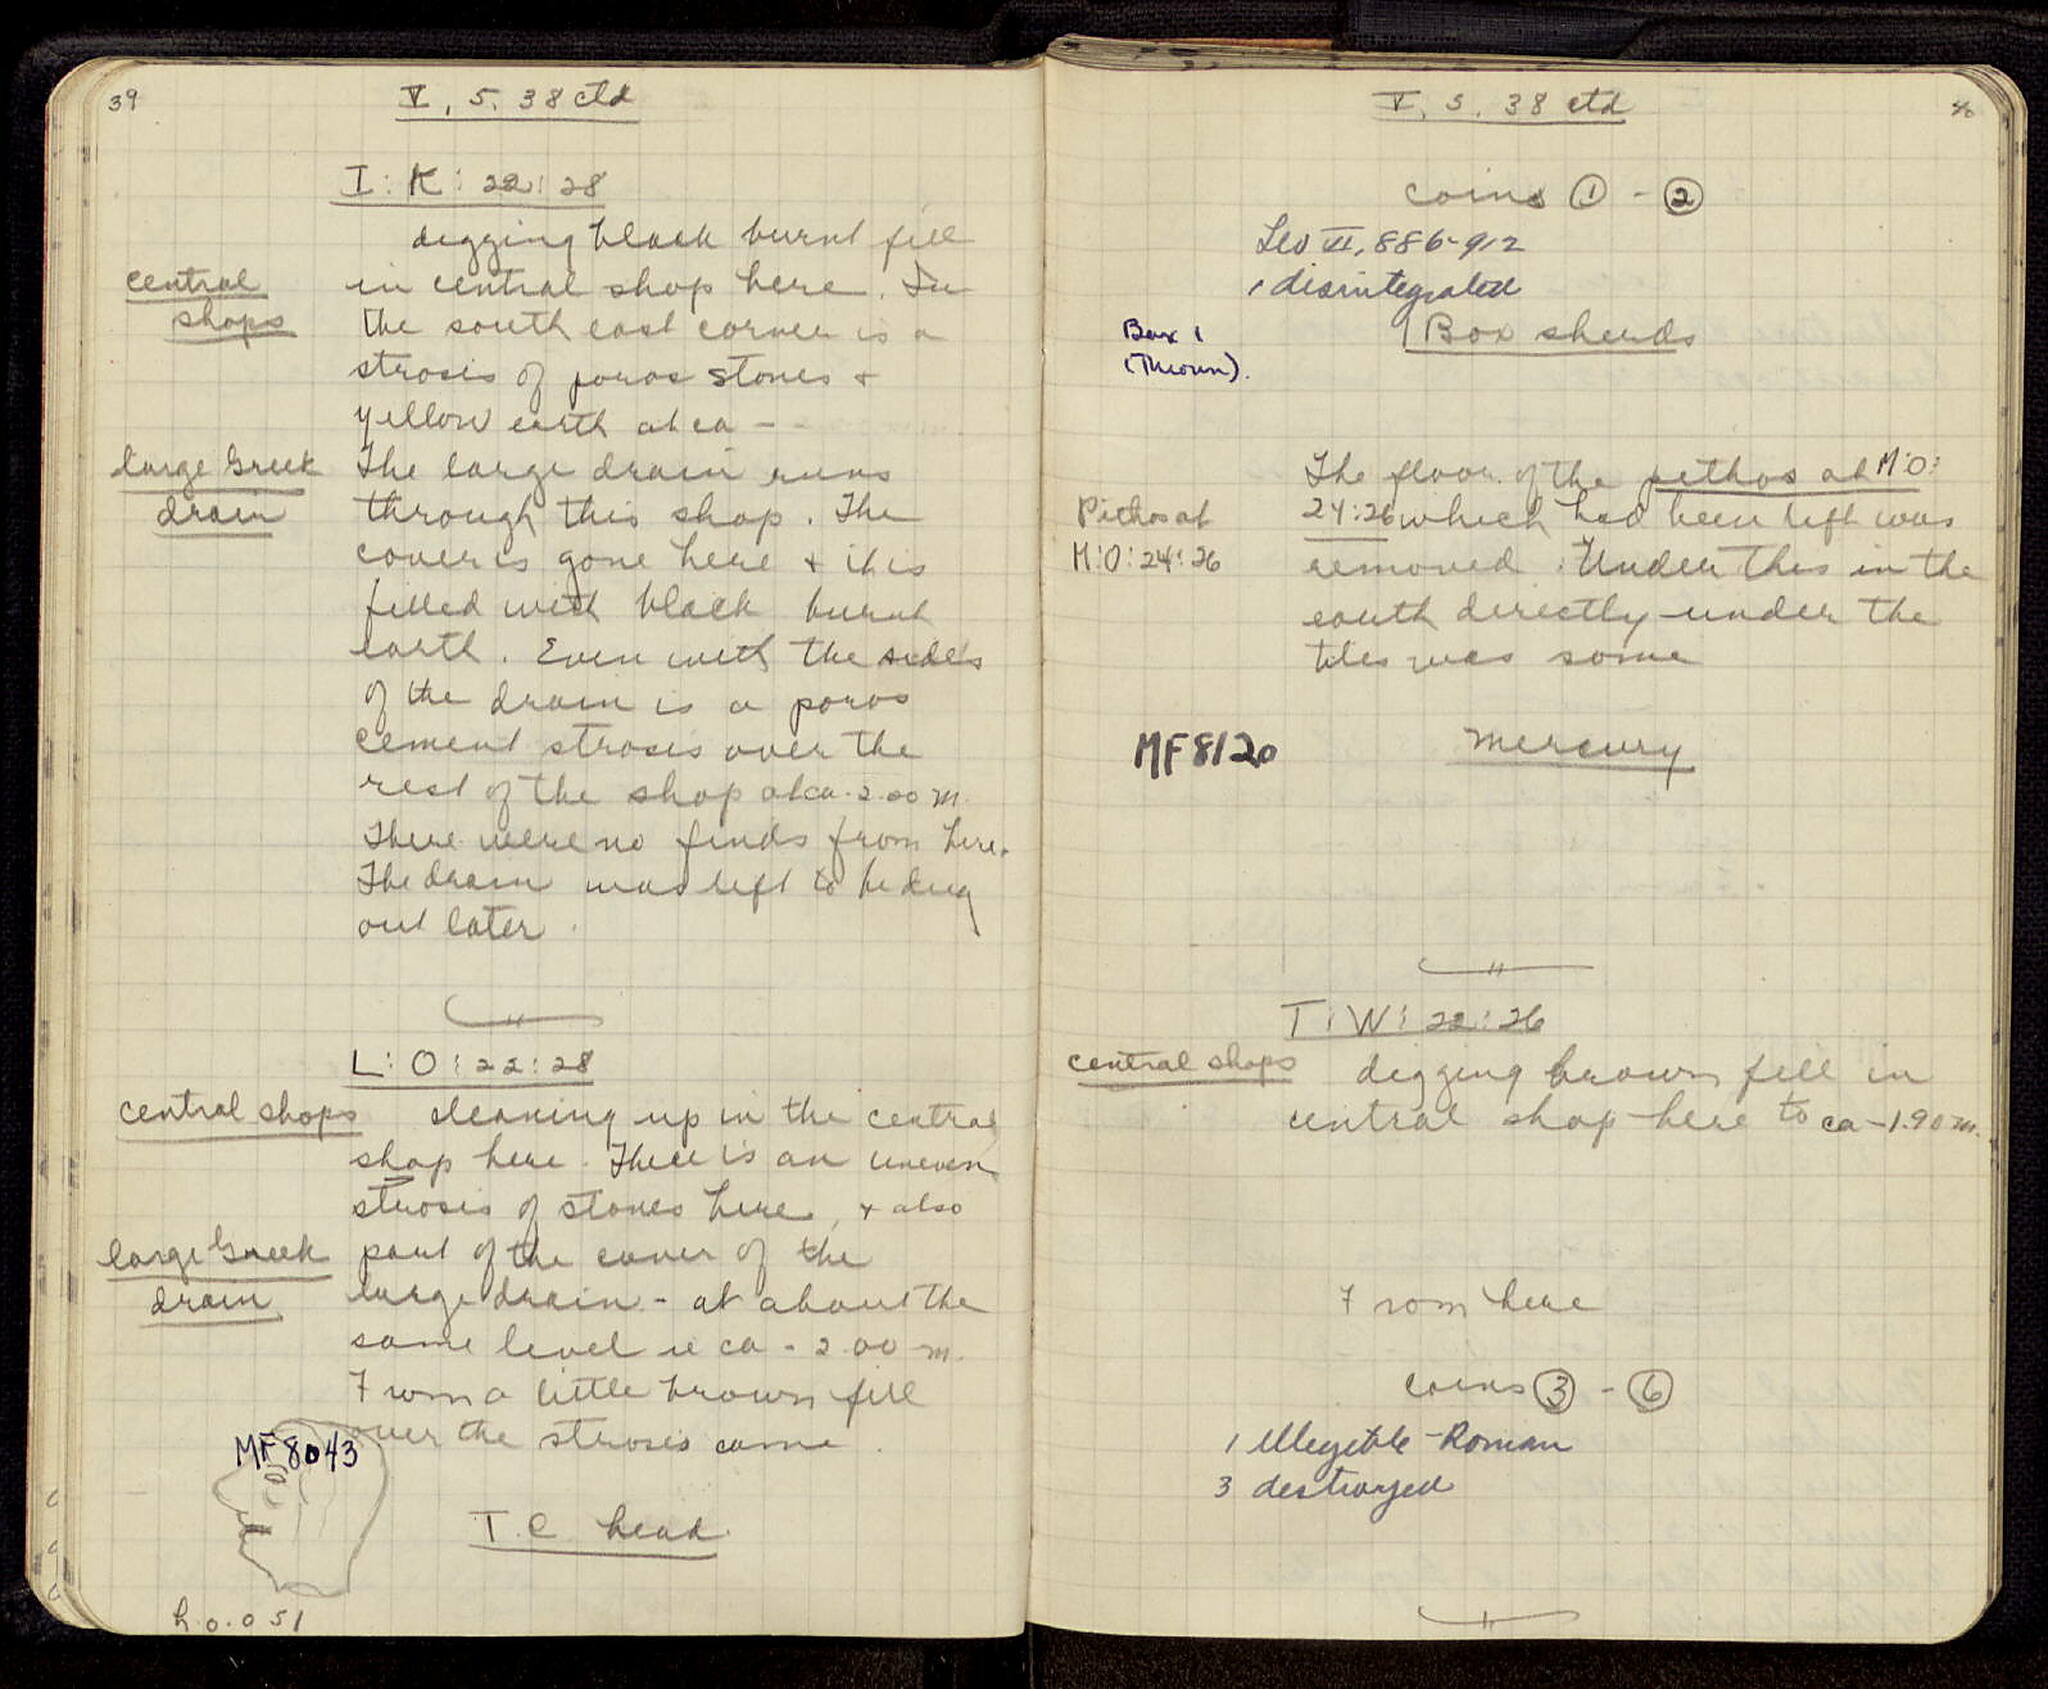 39
V, 5. 38 ctd
I:K:22:28
digging black burnt fill
central
shops
in central shop here. In
the south east corner is a
strosis of poros stones +
yellow earth at ca -
large Greek
drain
The large drain runs
through this shop. The
cover is gone here + it is
filled with black burnt
earth. Even with the sides
of the drain is a poros
cement strosis over the
rest of the shop at ca. 2.00 m.
There were no finds from here.
The drain was left to be dug
out later.
L:O:22:28
central shops
cleaning up in the central
shop here. There is an uneven
strosis of stones here, + also
large Greek
drain
part of the cover of the
large drain - at about the
same level ie ca - 2.00 m.
From a little brown fill
over the strosis came.
MF 8043
T.C. head
h 0.051
40
V, 5. 38 ctd
coins ① - ②
Leo VI, 886-912
1 disintegrated
1 Box sherds
Box 1
(Thrown).
The floor of the pithos at M:O:
Pithos at
M:O:24:26
24:26 which had been left was
removed. Under this in the
earth directly under the
tiles was some
MF 8120
mercury
T:W:22:26
central shops
digging brown fill in
central shop here to ca -1.90 m.
From here
coins ③ - ⑥
1 illegible - Roman
3 destroyed